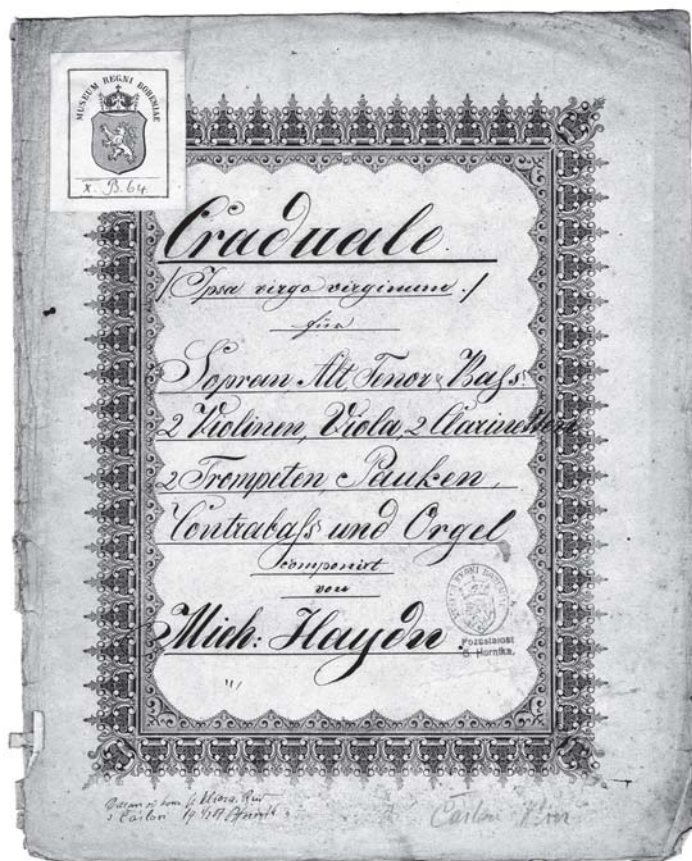 MUSEUM REGNI BOHEMIAE
X. B. 64
Graduale.
/ Ipsa virgo virginum. /
für
Sopran, Alt Tenor & Bass
2 Violinen, Viola, 2 Clarinetten
2 Trompeten, Pauken,
Contrabass und Orgel
componirt
von
Mich: Haydn.
Pozůstalost
Hornika.
Čáslav